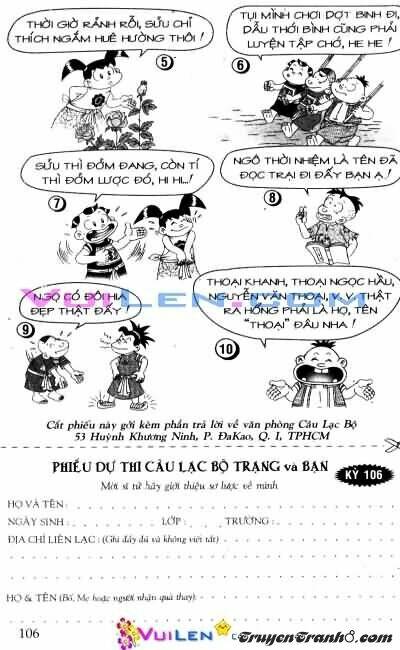 THỜI GIỜ RẢNH RỖI, SỬU CHỈ
THÍCH NGẮM HUÊ HƯỜNG THÔI!
5
TỤI MÌNH CHƠI DỢT BINH ĐI,
DẪU THỜI BÌNH CŨNG PHẢI
LUYỆN TẬP CHỚ, HE HE!
6
SỬU THÌ ĐỞM ĐANG, CÒN TÍ
THÌ ĐỞM LƯỢC ĐÓ, HI HI...!
7
NGÔ THỜI NHIỆM LÀ TÊN ĐÃ
ĐỌC TRẠI ĐI ĐẤY BẠN Ạ!
8
NGỌ CÓ ĐÔI HIA
ĐẸP THẬT ĐẤY!
9
THOẠI KHANH, THOẠI NGỌC HẦU,
NGUYỄN VĂN THOẠI, V. V. THẬT
RA HỔNG PHẢI LÀ HỌ, TÊN
"THOẠI" ĐÂU NHA!
10
VUILEN.COM
Cắt phiếu này gởi kèm phần trả lời về văn phòng Câu Lạc Bộ
53 Huỳnh Khương Ninh, P. ĐaKao, Q. I, TPHCM
PHIẾU DỰ THI CÂU LẠC BỘ TRẠNG và BẠN
KỲ 106
Mời sĩ tử hãy giới thiệu sơ lược về mình
HỌ VÀ TÊN :
NGÀY SINH : LỚP : TRƯỜNG :
ĐỊA CHỈ LIÊN LẠC : (Ghi đầy đủ và không viết tắt)
HỌ & TÊN (Bố, Mẹ hoặc người nhận quà thay):
106
VUILEN
TruyenTranh8.com